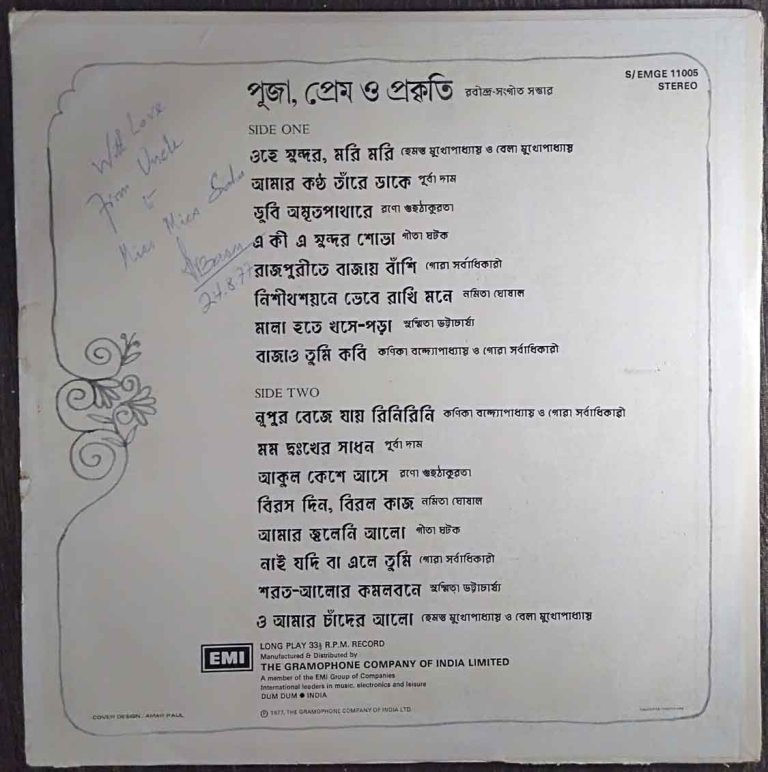 S/EMGE 11005
STEREO
পূজা, প্রেম ও প্রকৃতি রবীন্দ্র-সংগীত সম্ভার
With Love
From Uncle
to
Miss
24.8.77
SIDE ONE
ওহে সুন্দর, মরি মরি হেমন্ত মুখোপাধ্যায় ও বেলা মুখোপাধ্যায়
আমার কণ্ঠ তাঁরে ডাকে পূর্বা দাম
ডুবি অমৃতপাথারে রণো গুহঠাকুরতা
এ কী এ সুন্দর শোভা গীতা ঘটক
রাজপুরীতে বাজায় বাঁশি গোরা সর্বাধিকারী
নিশীথশয়নে ভেবে রাখি মনে নমিতা ঘোষাল
মালা হতে খসে-পড়া সুস্মিতা ভট্টাচার্য্য
বাজাও তুমি কবি কণিকা বন্দ্যোপাধ্যায় ও গোরা সর্বাধিকারী
SIDE TWO
নূপুর বেজে যায় রিনিরিনি কণিকা বন্দ্যোপাধ্যায় ও গোরা সর্বাধিকারী
মম দুঃখের সাধন পূর্বা দাম
আকুল কেশে আসে রণো গুহঠাকুরতা
বিরস দিন, বিরল কাজ নমিতা ঘোষাল
আমার জ্বলেনি আলো গীতা ঘটক
নাই যদি বা এলে তুমি গোরা সর্বাধিকারী
শরত-আলোর কমলবনে সুস্মিতা ভট্টাচার্য্য
ও আমার চাঁদের আলো হেমন্ত মুখোপাধ্যায় ও বেলা মুখোপাধ্যায়
EMI
LONG PLAY 33⅓ R.P.M. RECORD
Manufactured & Distributed by
THE GRAMOPHONE COMPANY OF INDIA LIMITED
A member of the EMI Group of Companies
International leaders in music, electronics and leisure
DUM DUM ● INDIA
COVER DESIGN : AMAR PAUL
℗ 1977, THE GRAMOPHONE COMPANY OF INDIA LTD.